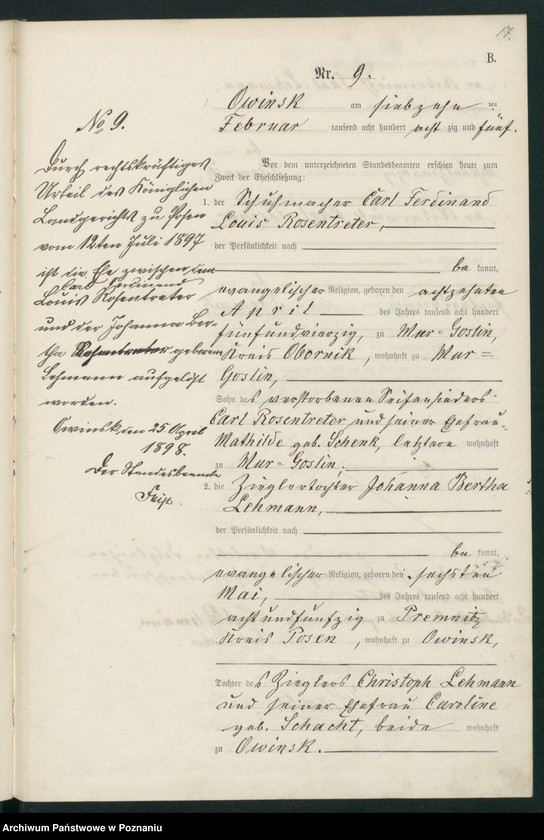 17.
B.
Nr. 9.
Owinsk am siebzehn ten
Februar tausend acht hundert acht zig und fünf.
Vor dem unterzeichneten Standesbeamten erschienen heute zum
Zweck der Eheschließung:
1. der Schuhmacher Carl Ferdinand
Louis Rosentreter,
der Persönlichkeit nach
be kannt,
evangelischer Religion, geboren den achtzehnten
April des Jahres tausend acht hundert
fünfundvierzig, zu Mur-Goslin,
Kreis Obornik, wohnhaft zu Mur=
Goslin,
Sohn des verstorbenen Seifensieders
Carl Rosentreter und seiner Ehefrau
Mathilde geb. Schenk, letztere wohnhaft
zu Mur-Goslin.
2. die Zieglertochter Johanna Bertha
Lehmann,
der Persönlichkeit nach
be kannt,
evangelischer Religion, geboren den sechsten
Mai, des Jahres tausend acht hundert
achtundfunfzig zu Premnitz
Kreis Posen, wohnhaft zu Owinsk,
Tochter des Zieglers Christoph Lehmann
und seiner Ehefrau Caroline
geb. Schacht, beide wohnhaft
zu Owinsk.
No 9.
Durch rechtskräftiges
Urteil des Königlichen
Landgerichts zu Posen
vom 12ten Juli 1897
ist die Ehe zwischen dem
Carl Ferdinand
Louis Rosentreter
und der Johanna Ber-
tha geborenen
Lehmann aufgelöst
worden.
Owinsk den 25. April
1898.
Der Standesbeamte
Archiwum Państwowe w Poznaniu